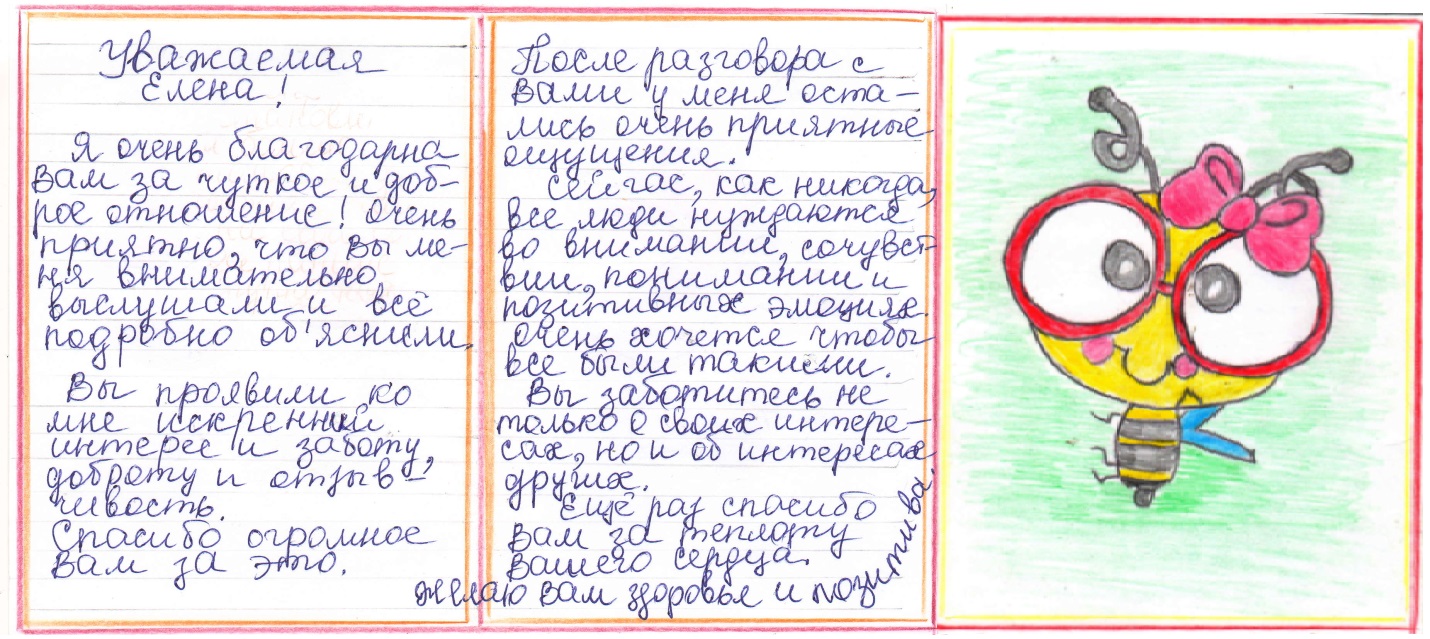 Уважаемая
Елена!
Я очень благодарна
вам за чуткое и доб-
рое отношение! Очень
приятно, что Вы ме-
ня внимательно
выслушали и всё
подробно об'яснили.
Вы проявили ко
мне искренний
интерес и заботу,
доброту и отзыв-
чивость.
Спасибо огромное
Вам за это.
После разговора с
Вами у меня оста-
лись очень приятные
ощущения.
Сейчас, как никогда,
все люди нуждаются
во внимании, сочувст-
вии, понимании и
позитивных эмоциях.
Очень хочется чтобы
все были такими.
Вы заботитесь не
только о своих интере-
сах, но и об интересах
других.
Ещё раз спасибо
Вам за теплоту
Вашего сердца.
Желаю Вам здоровья и позитива.